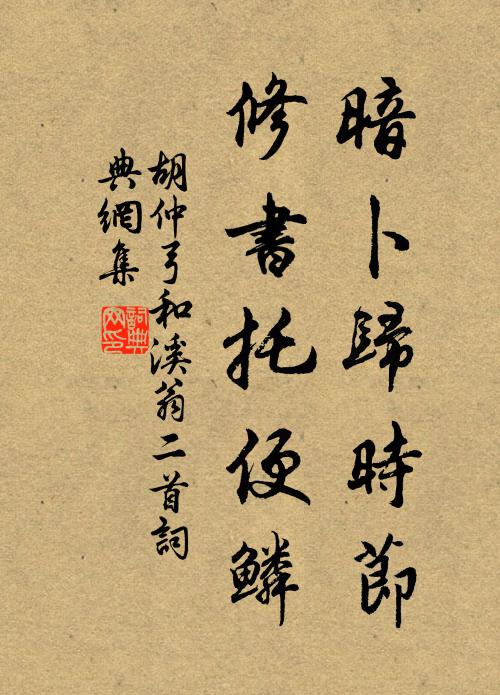 暗卜歸時節
修書托便鱗
胡仲弓和溪翁二首詞
典網集
詞典網印